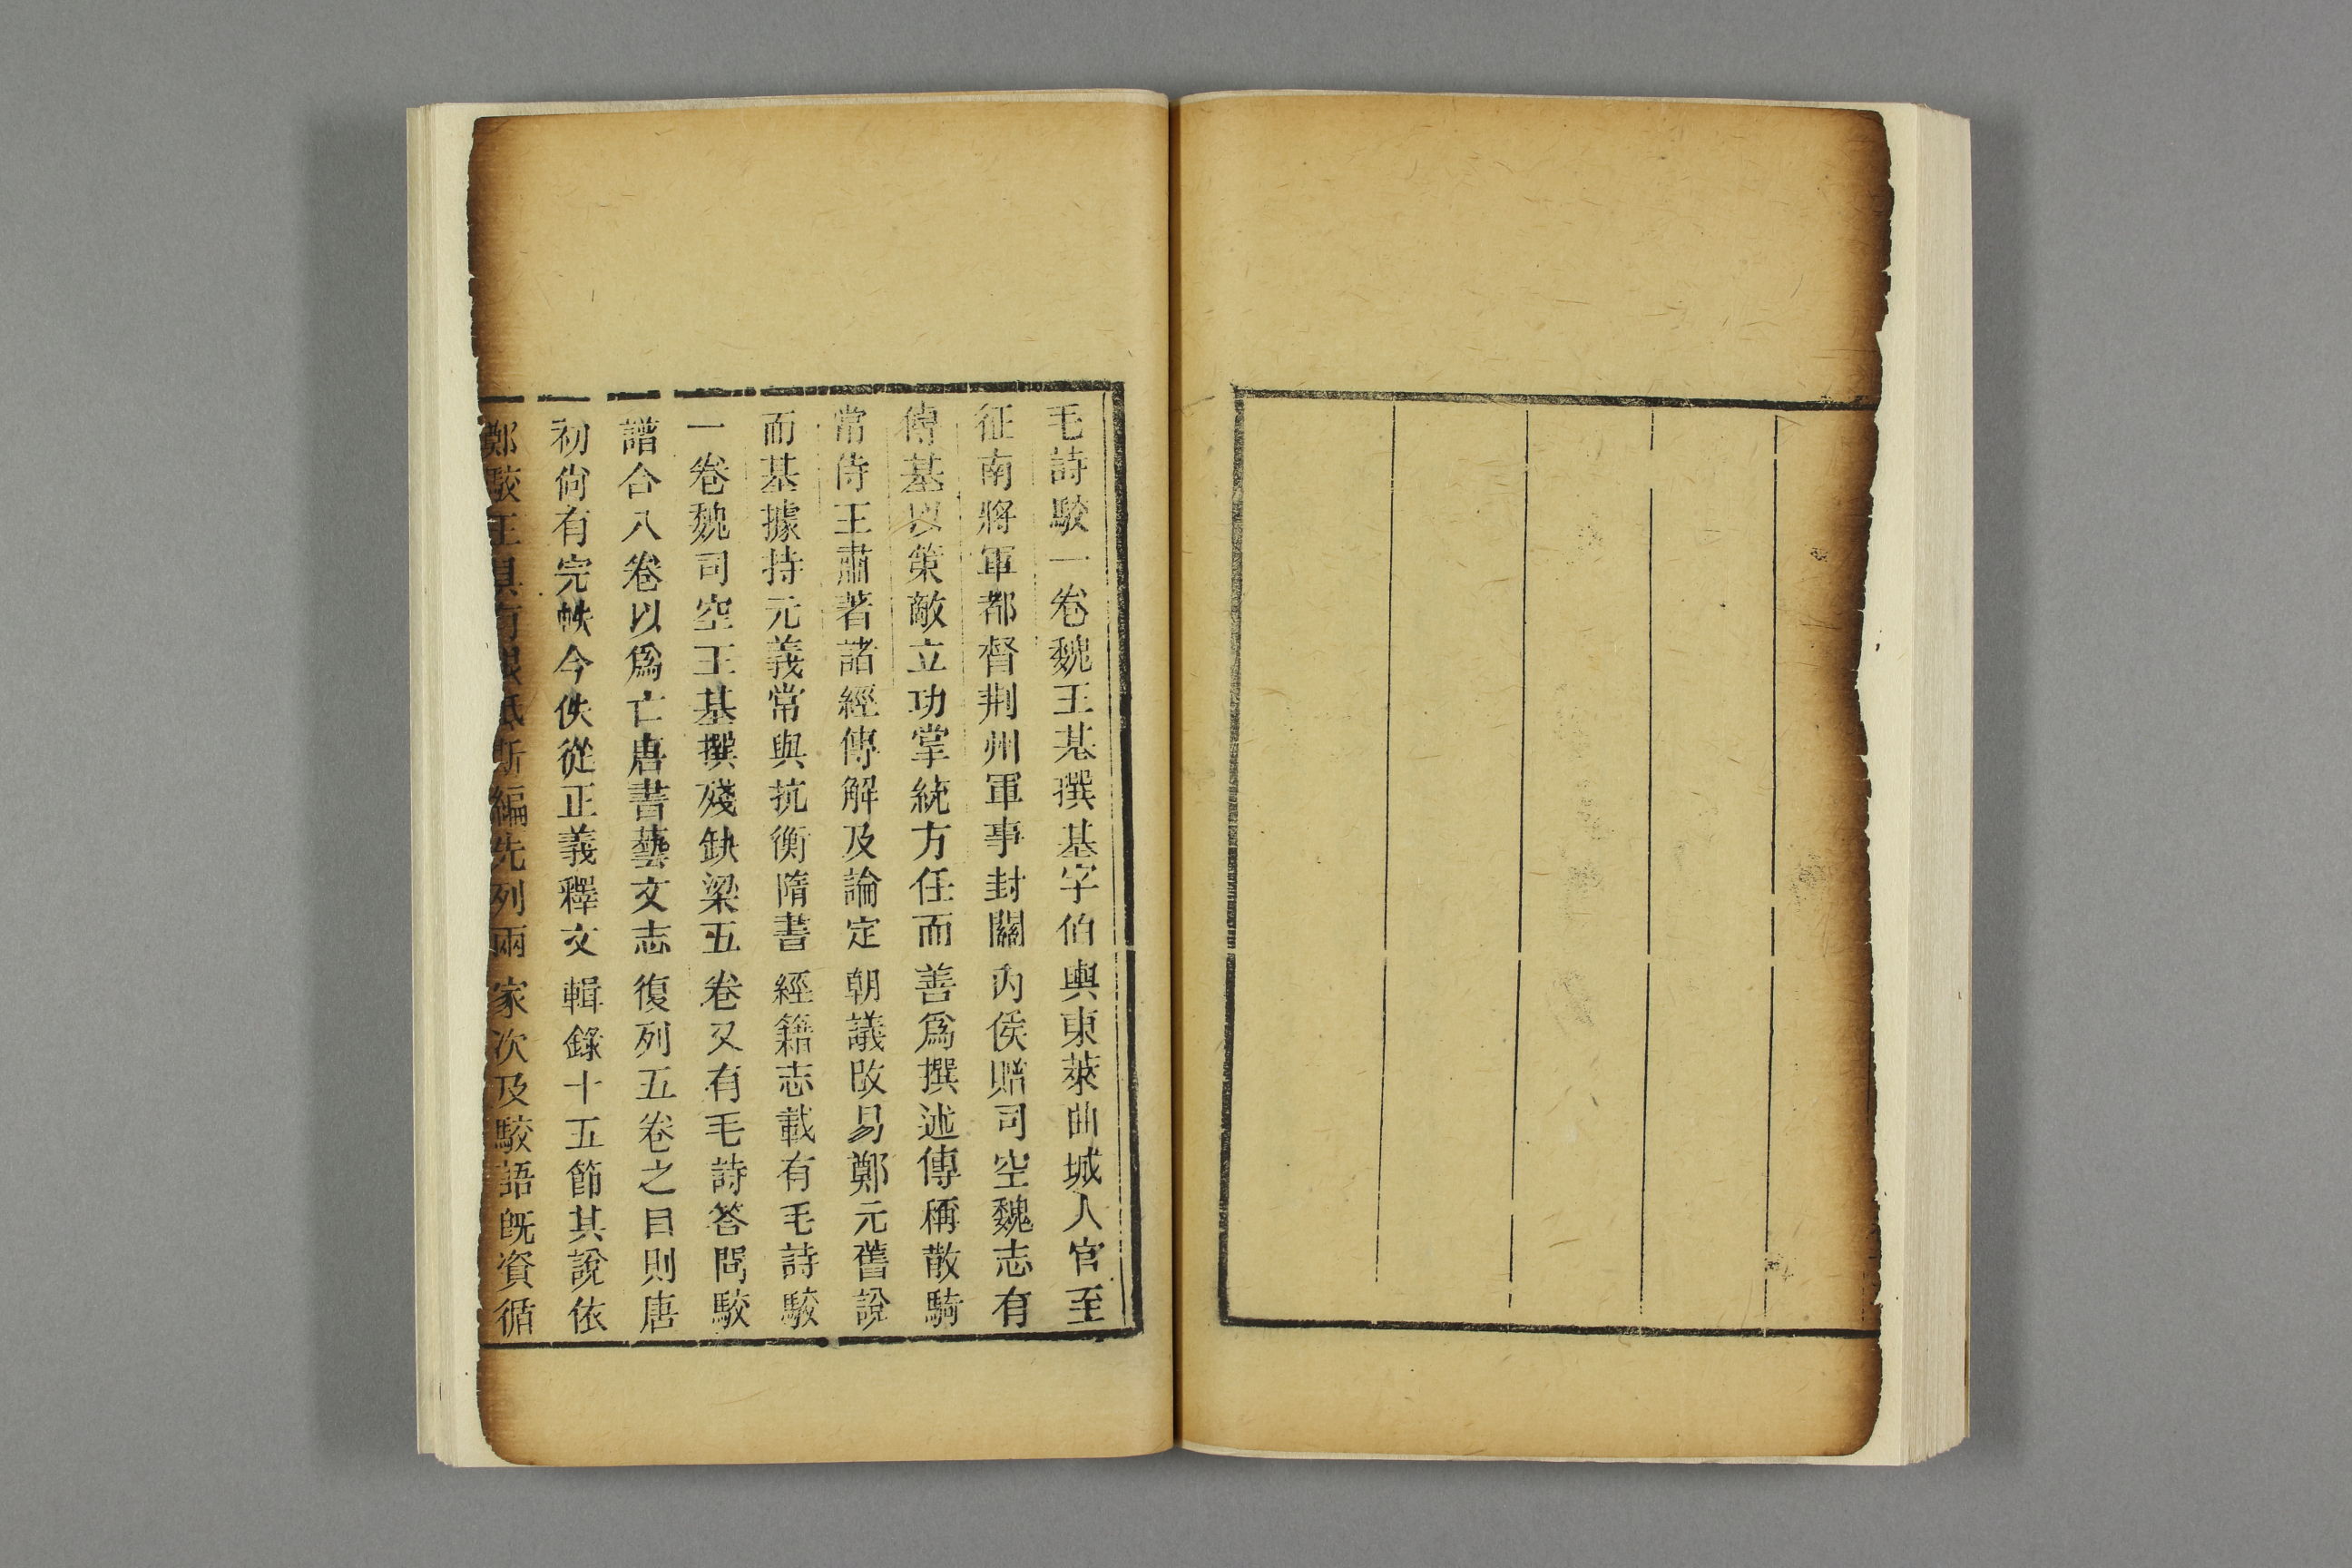 毛詩駮一卷魏王基撰基字伯輿東萊曲城人官至
征南將軍都督荆州軍事封關內侯贈司空魏志有
傳基以策敵立功掌統方任而善爲撰述傳稱散騎
常侍王肅著諸經傳解及論定朝議改易鄭元舊說
而基據持元義常與抗衡隋書經籍志載有毛詩駮
一卷魏司空王基撰殘缺梁五卷又有毛詩答問駮
譜合八卷以爲亡唐書藝文志復列五卷之目則唐
初尙有完帙今佚從正義釋文輯錄十五節其說依
鄭駮王具有根柢斯編先列兩家次及駮語旣資循